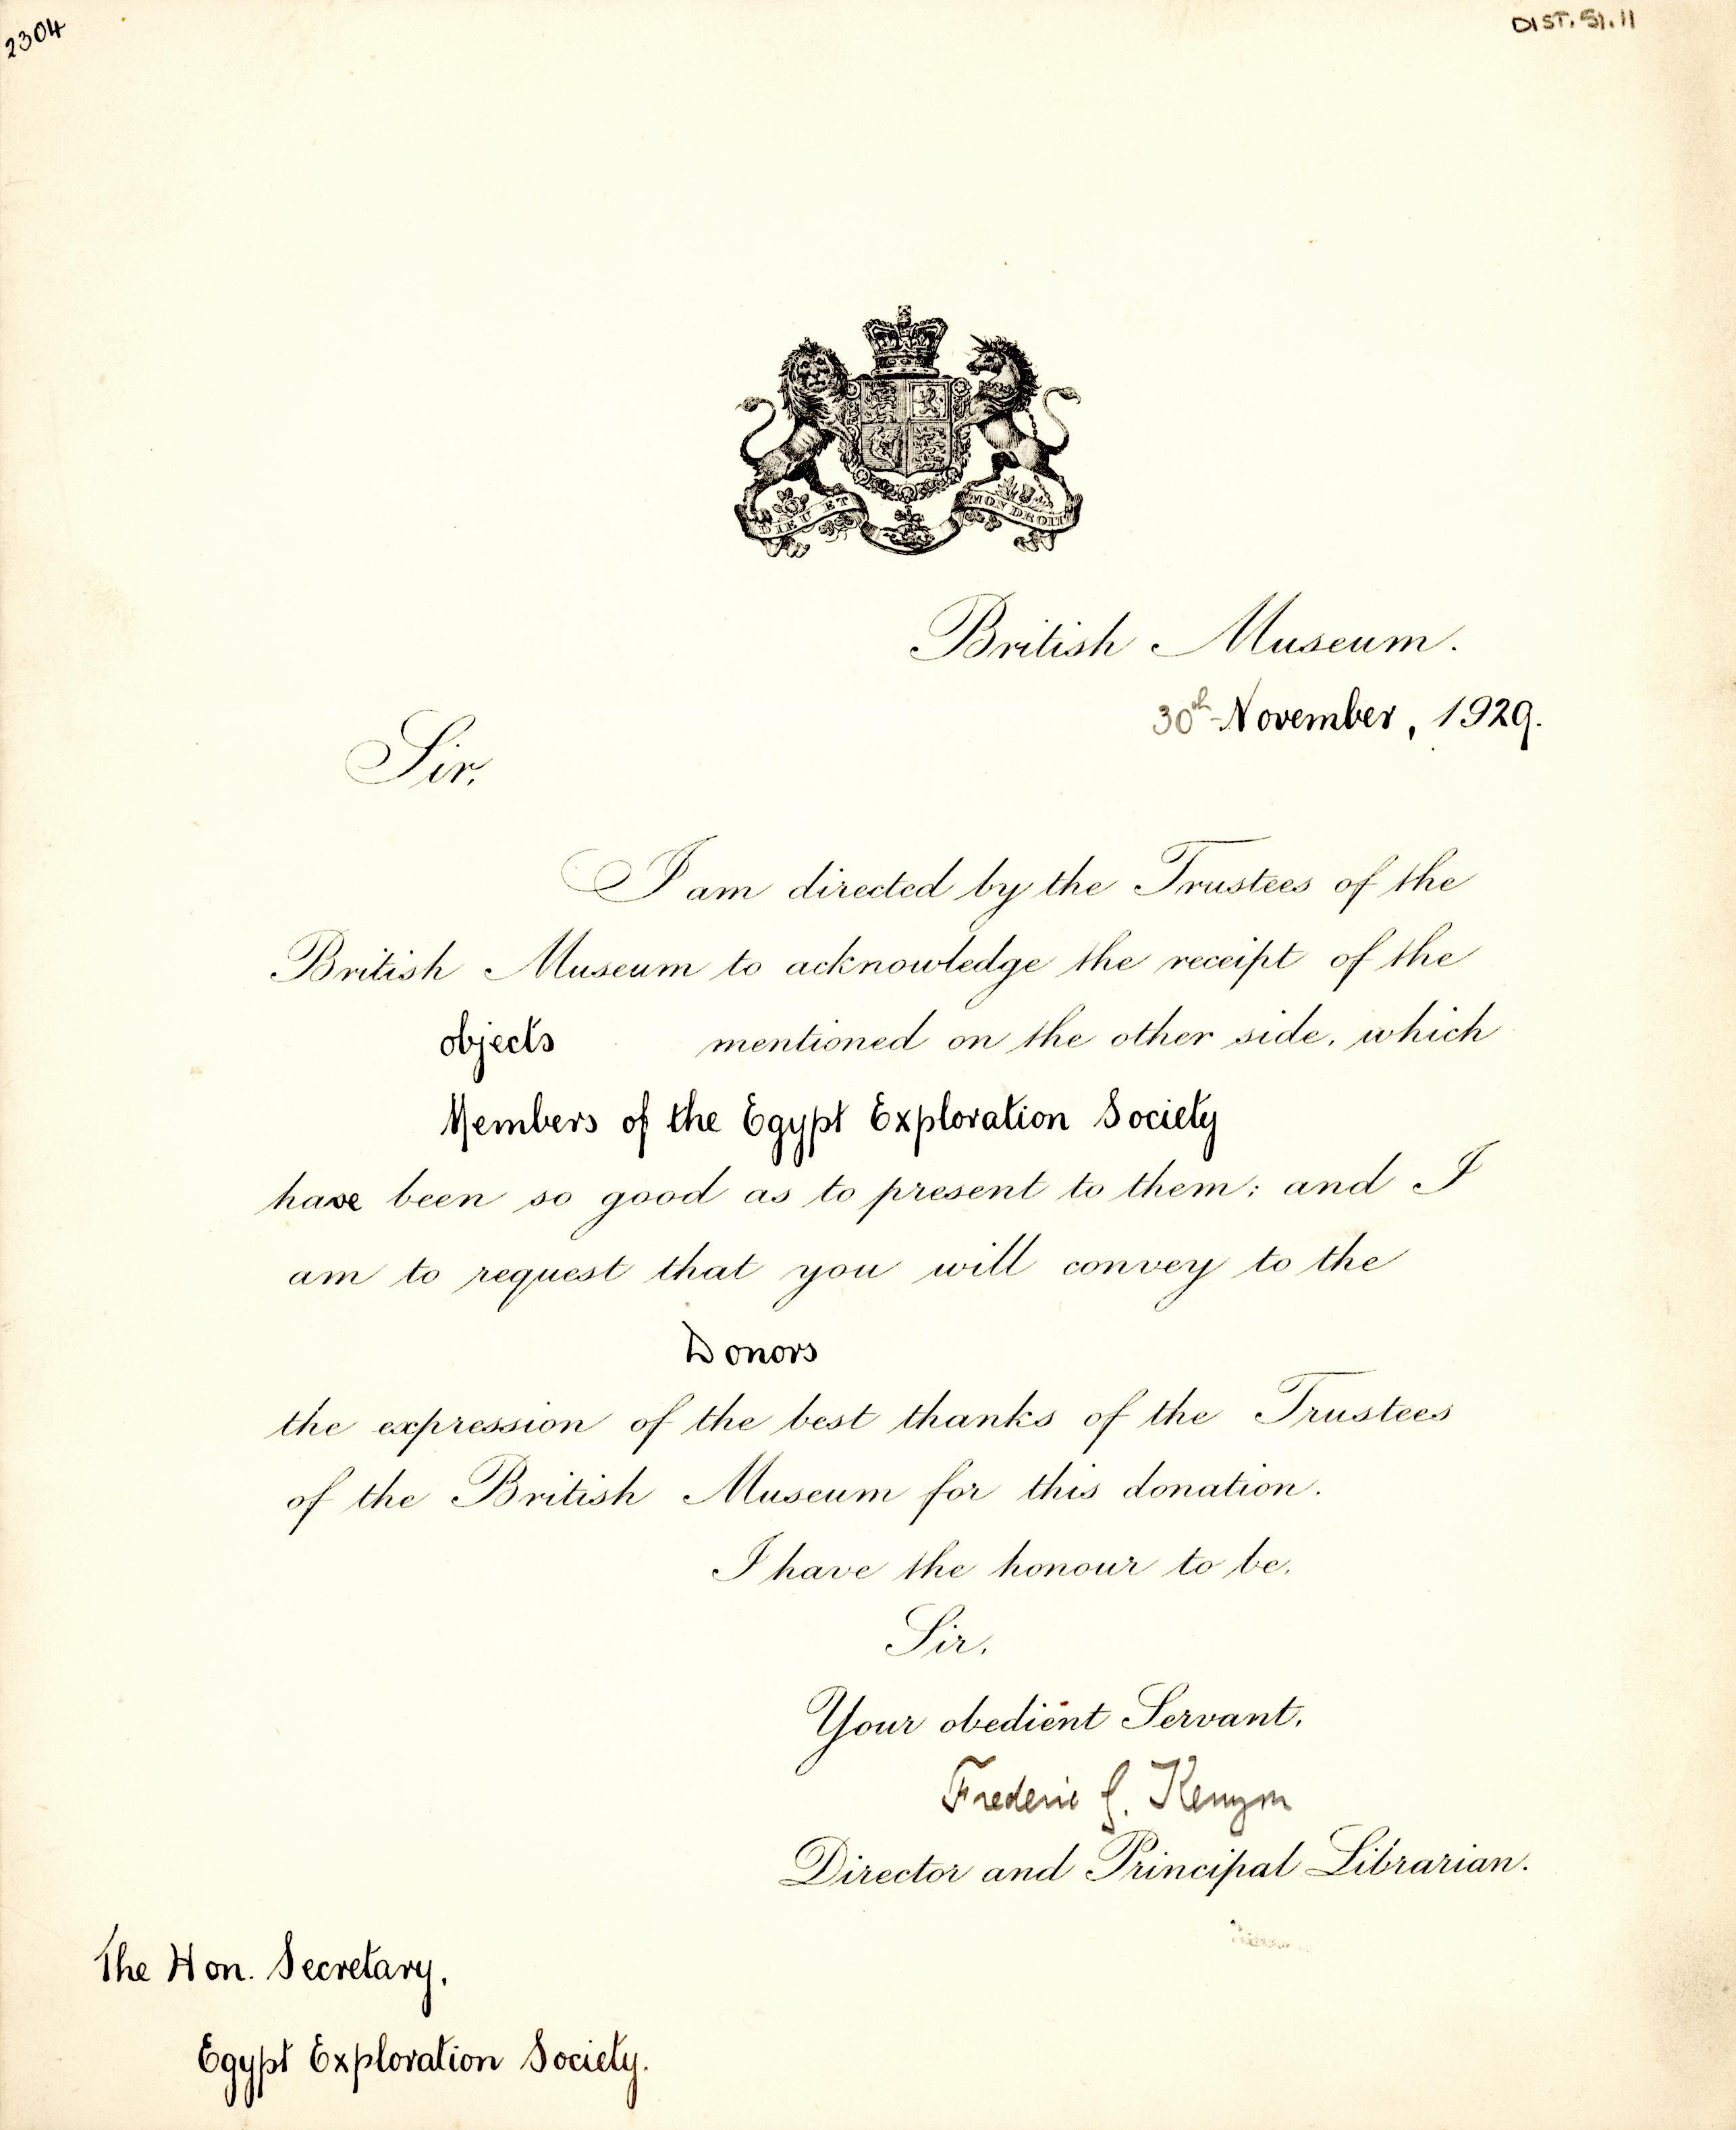 2304
DIST. 51.11
DIEU ET MON DROIT
British Museum.
30th November, 1929.
Sir,
I am directed by the Trustees of the
British Museum to acknowledge the receipt of the
objects mentioned on the other side, which
Members of the Egypt Exploration Society
have been so good as to present to them: and I
am to request that you will convey to the
Donors
the expression of the best thanks of the Trustees
of the British Museum for this donation.
I have the honour to be,
Sir,
Your obedient Servant,
Frederic G. Kenyon
Director and Principal Librarian.
The Hon. Secretary,
Egypt Exploration Society.